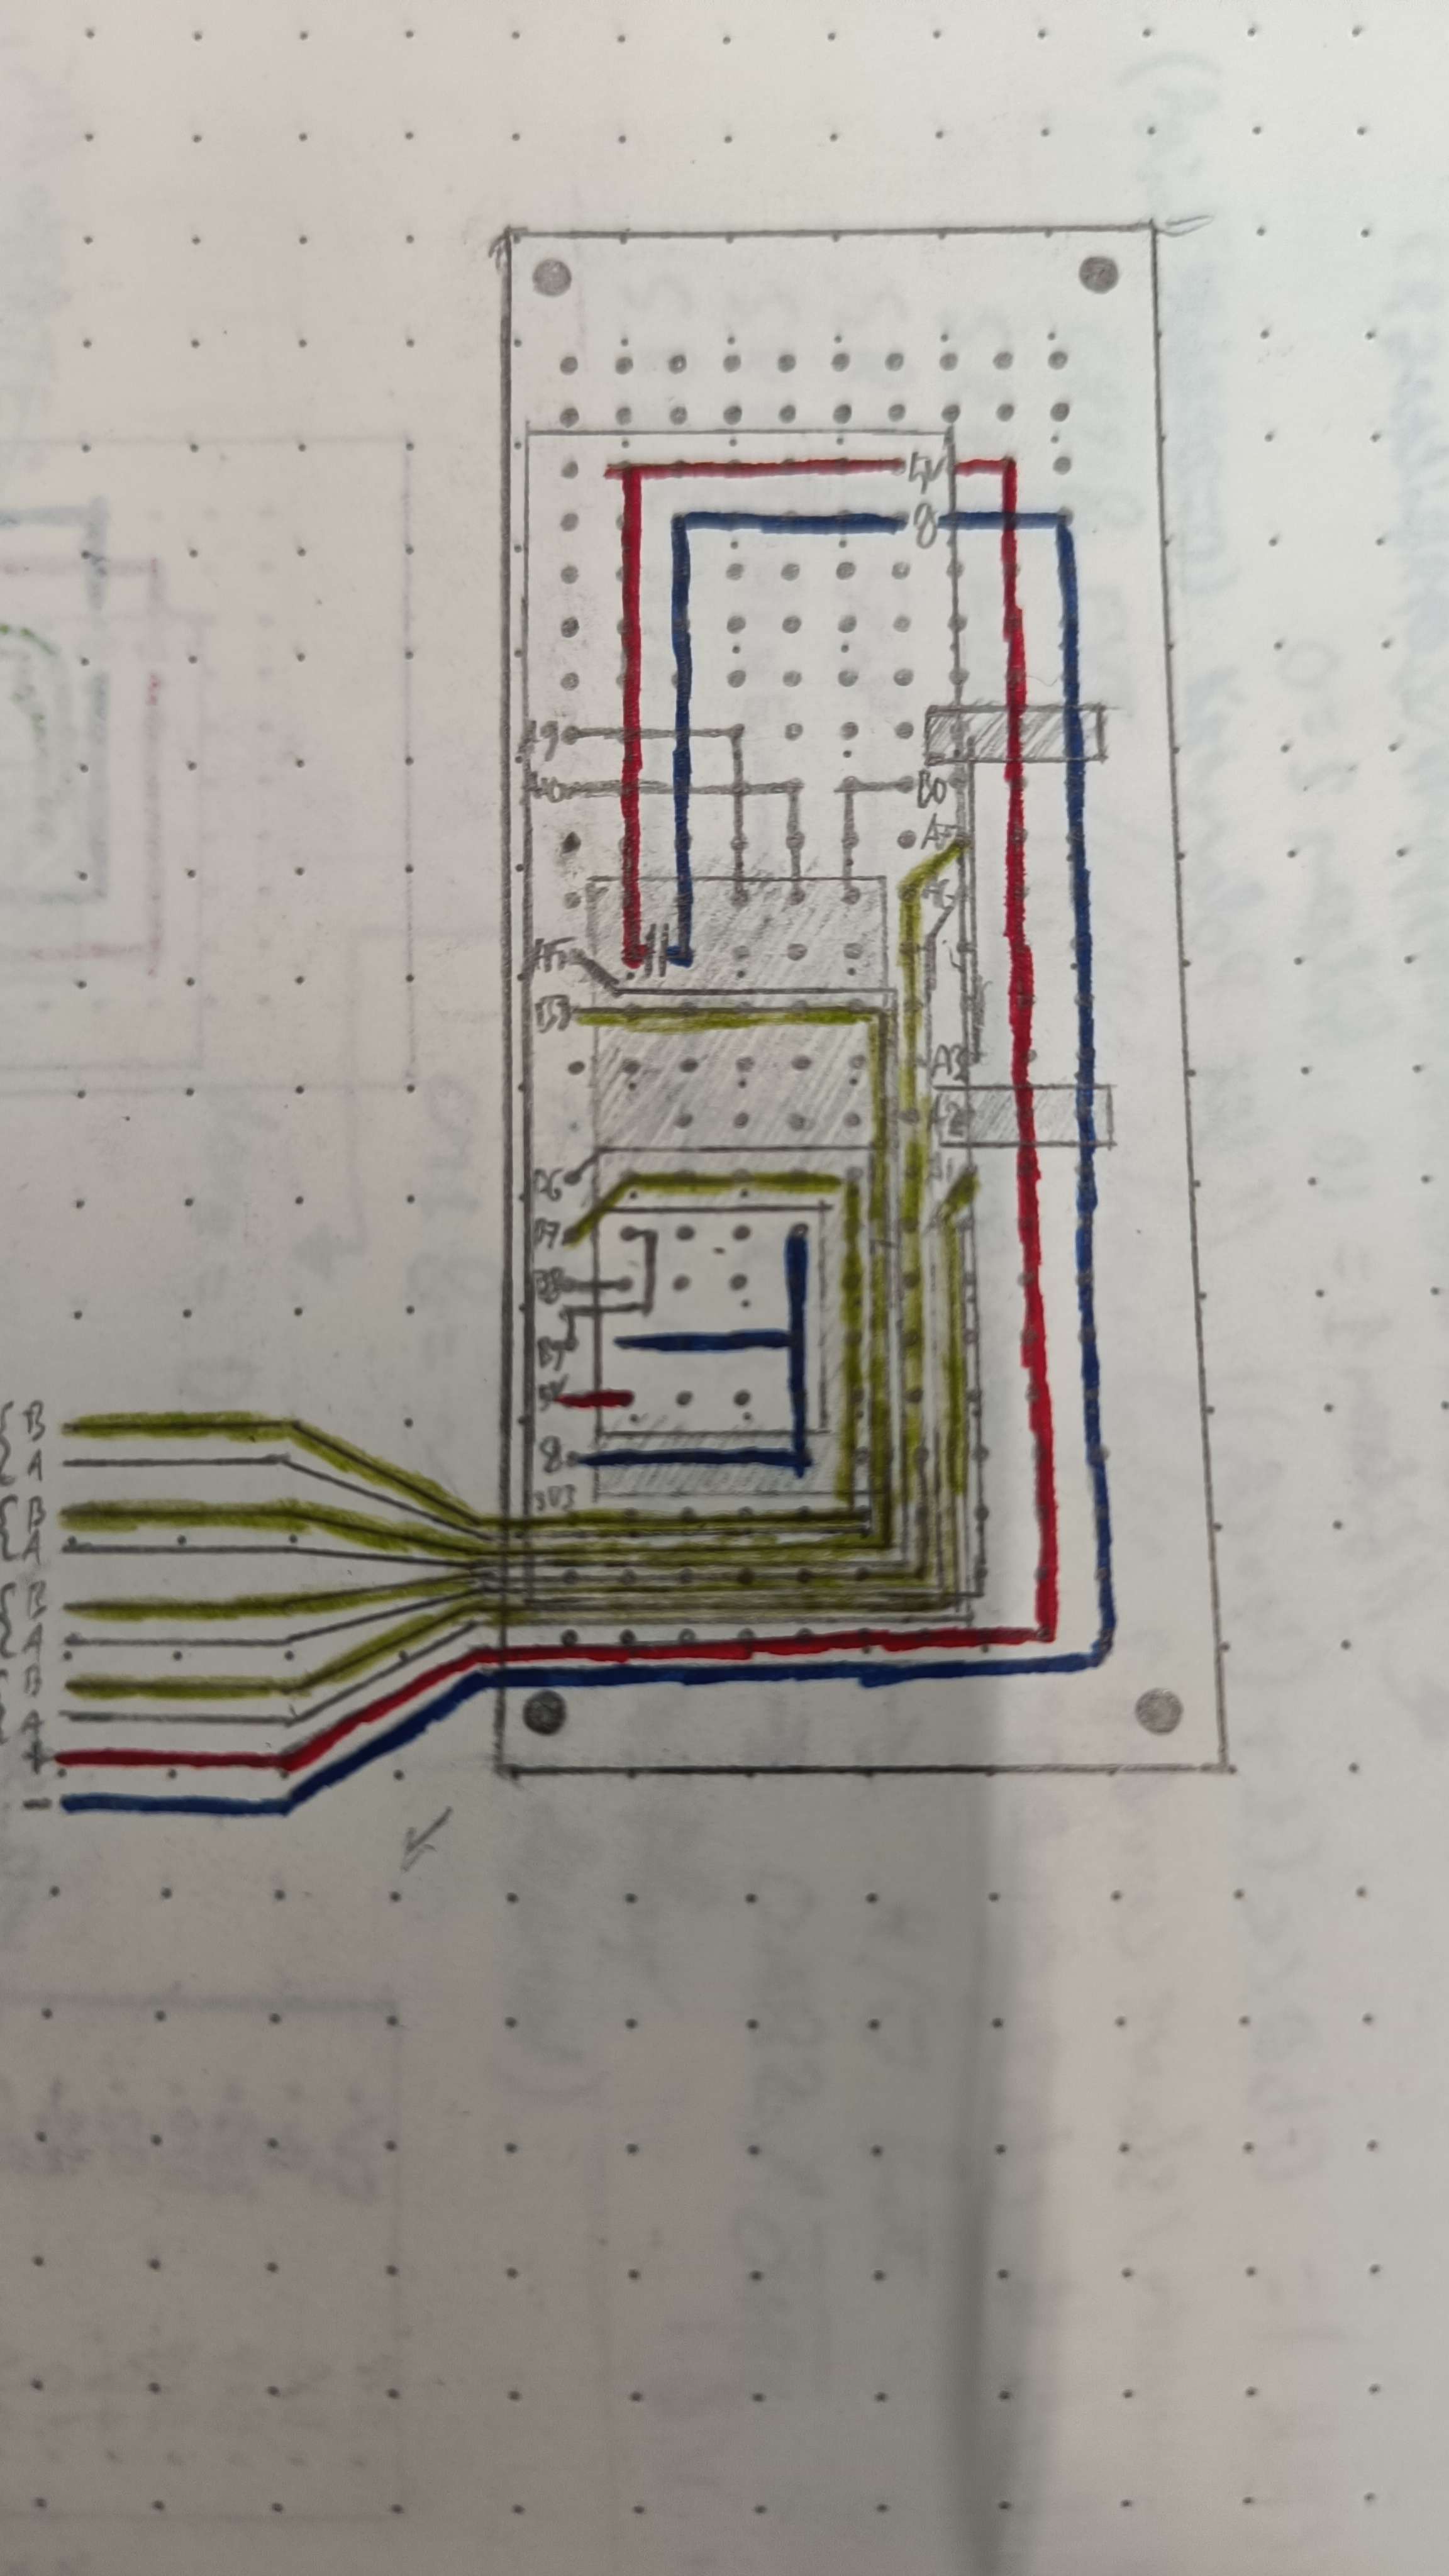 5V
g
A9
A10
B0
A7
A3
A2
A1
A6
B7
B8
B9
5V
g
3V3
B
A
B
A
B
A
B
A
+
-